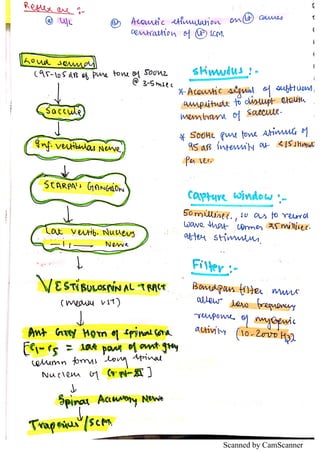 Reflex arc :-
@ U/L
Acoustic stimulation on causes
contraction of SCM
Loud sound
(95-105 dB of pure tone of 500Hz
@ 3-5/sec
Saccule
Inf. vestibular Nerve
SCARPA's GANGLION
Lat Vestib. Nucleus
Nerve
VESTIBULOSPINAL TRACT
(medial VST)
Ant Grey Horn of Spinal Cord
[C1-C5 = lat part of ant grey
column forms long spinal
Nucleus of CN-XI]
Spinal Accessory Nerve
Trapezius/SCM
Stimulus :-
* Acoustic signal of sufficient
amplitude to disrupt Otolith
membrane of Saccule.
* 500Hz pure tone stimulus of
95 dB intensity at <15
per sec
Capture Window :-
50 millisec., so as to record
wave that comes 25 millisec.
after stimulus.
Filter :-
Bandpass filter must
allow low frequency
response of myogenic
activity (10-2000Hz)
Scanned by CamScanner